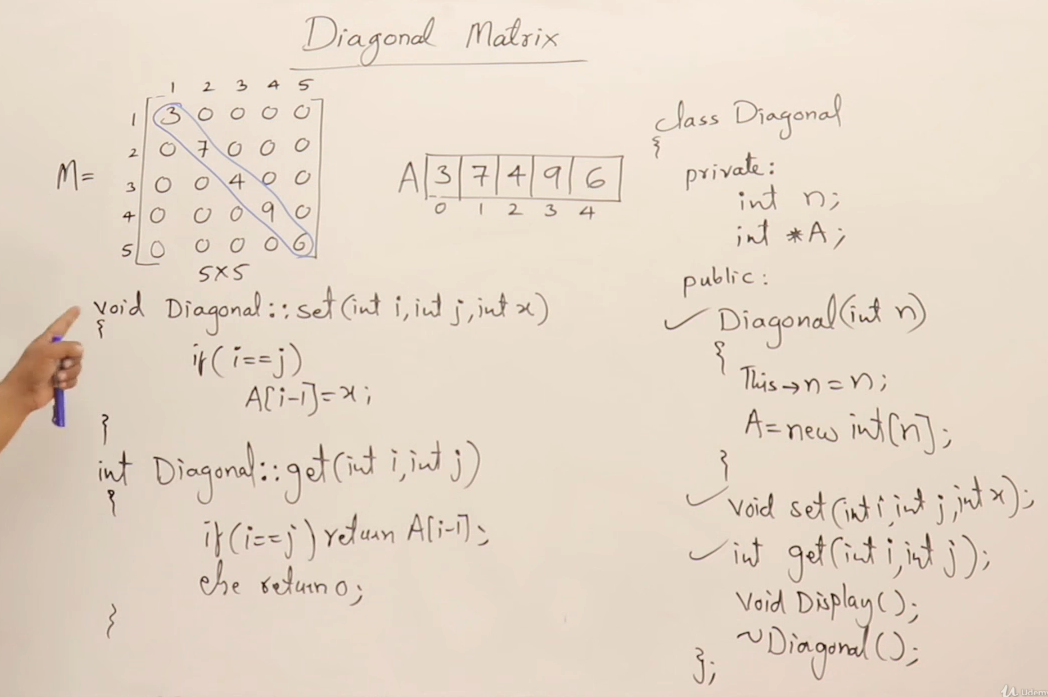 Diagonal Matrix
1 2 3 4 5
1 3 0 0 0 0
2 0 7 0 0 0
M=
3 0 0 4 0 0
4 0 0 0 9 0
5 0 0 0 0 6
5×5
A 3 7 4 9 6
0 1 2 3 4
void Diagonal::set(int i,int j,int x)
{
if(i==j)
A[i-1]=x;
}
int Diagonal::get(int i,int j)
{
if(i==j) return A[i-1];
else return 0;
}
class Diagonal
{
private:
int n;
int *A;
public:
✓ Diagonal(int n)
{
This→n=n;
A=new int[n];
}
✓ void set(int i,int j,int x);
✓ int get(int i,int j);
void Display();
~Diagonal();
};
Udemy